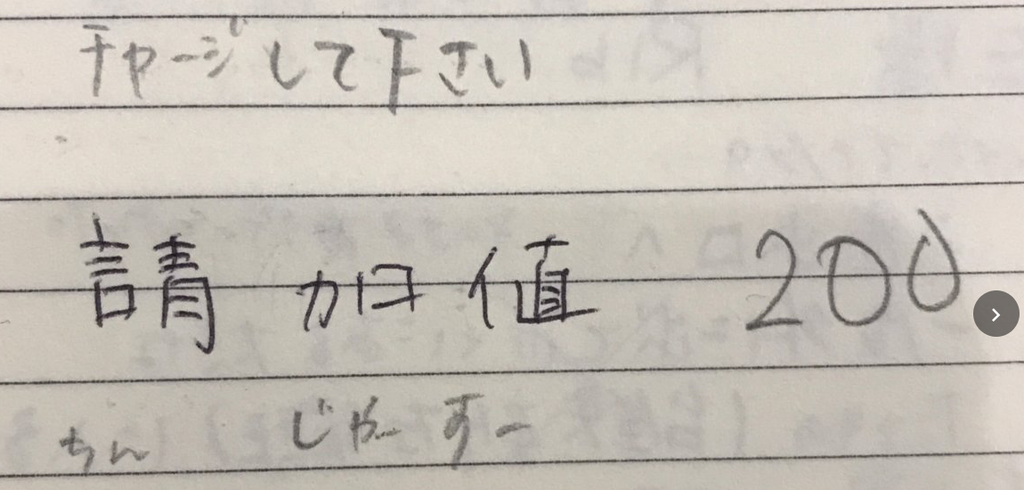 チャージして下さい
請 加値 200
ちん じゃー すー